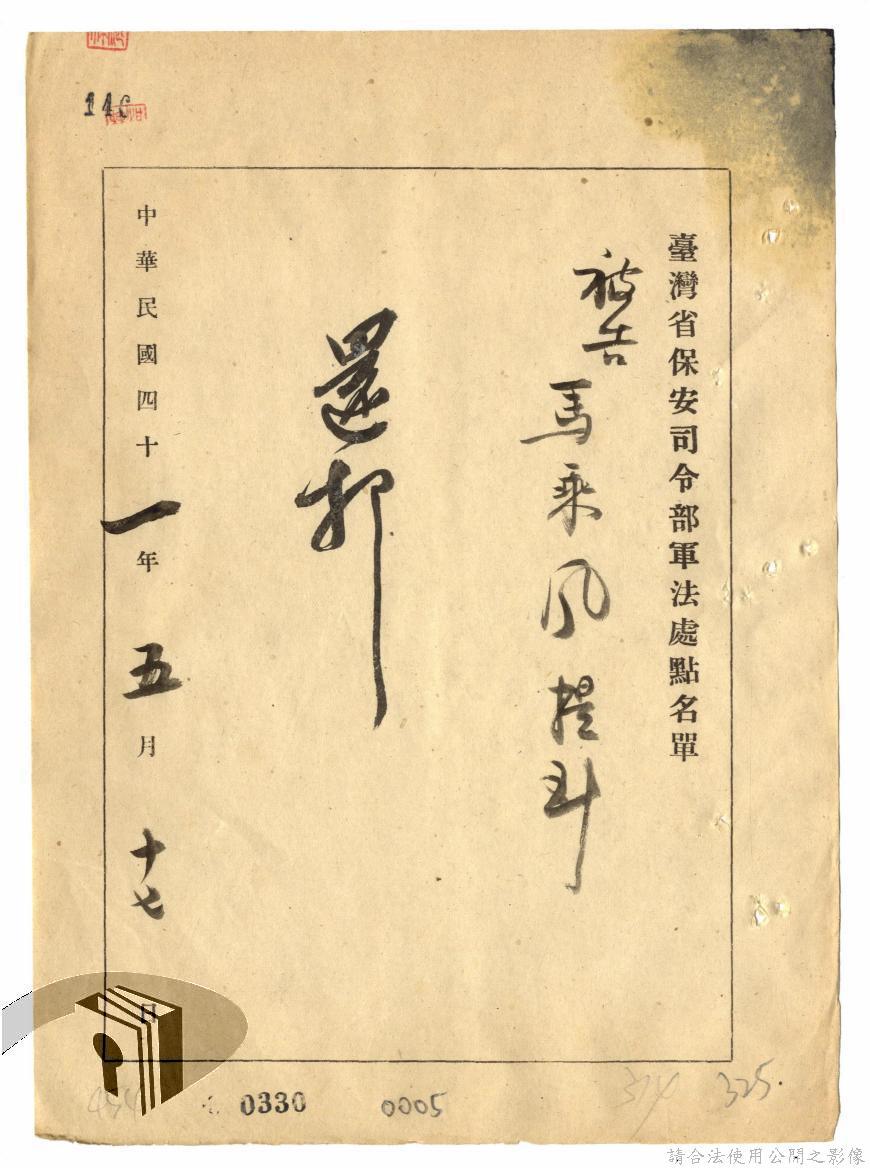 臺灣省保安司令部軍法處點名單
被告
馬乘風 提到
還押
中華民國四十一年五月十七日
0330
0005
325
請合法使用公開之影像